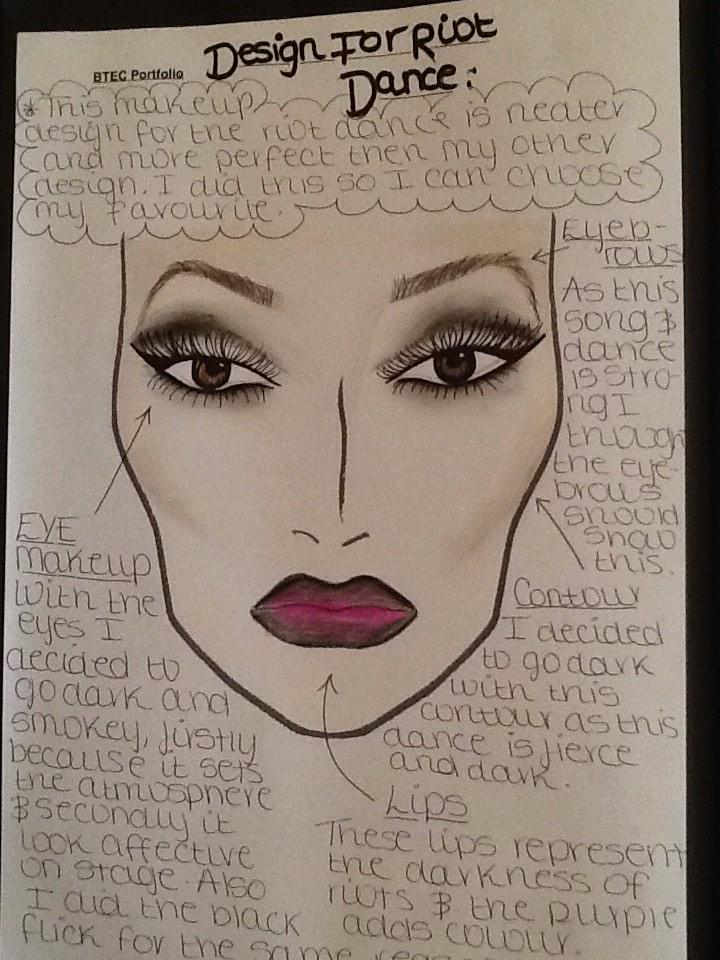 Design For Riot
BTEC Portfolio
Dance:
*This makeup
design for the riot dance is neater
and more perfect then my other
design. I did this so I can choose
my favourite.
Eyeb-
rows
As this
song &
dance
is stro-
ng I
though
the eye-
brows
should
show
this.
EYE
makeup
With the
eyes I
decided to
go dark and
smokey, firstly
because it sets
the atmosphere
& secondly it
look affective
on stage. Also
I did the black
flick for the same
Contour
I decided
to go dark
with this
contour as this
dance is fierce
and dark.
Lips
These lips represent
the darkness of
riots & the purple
adds colour.